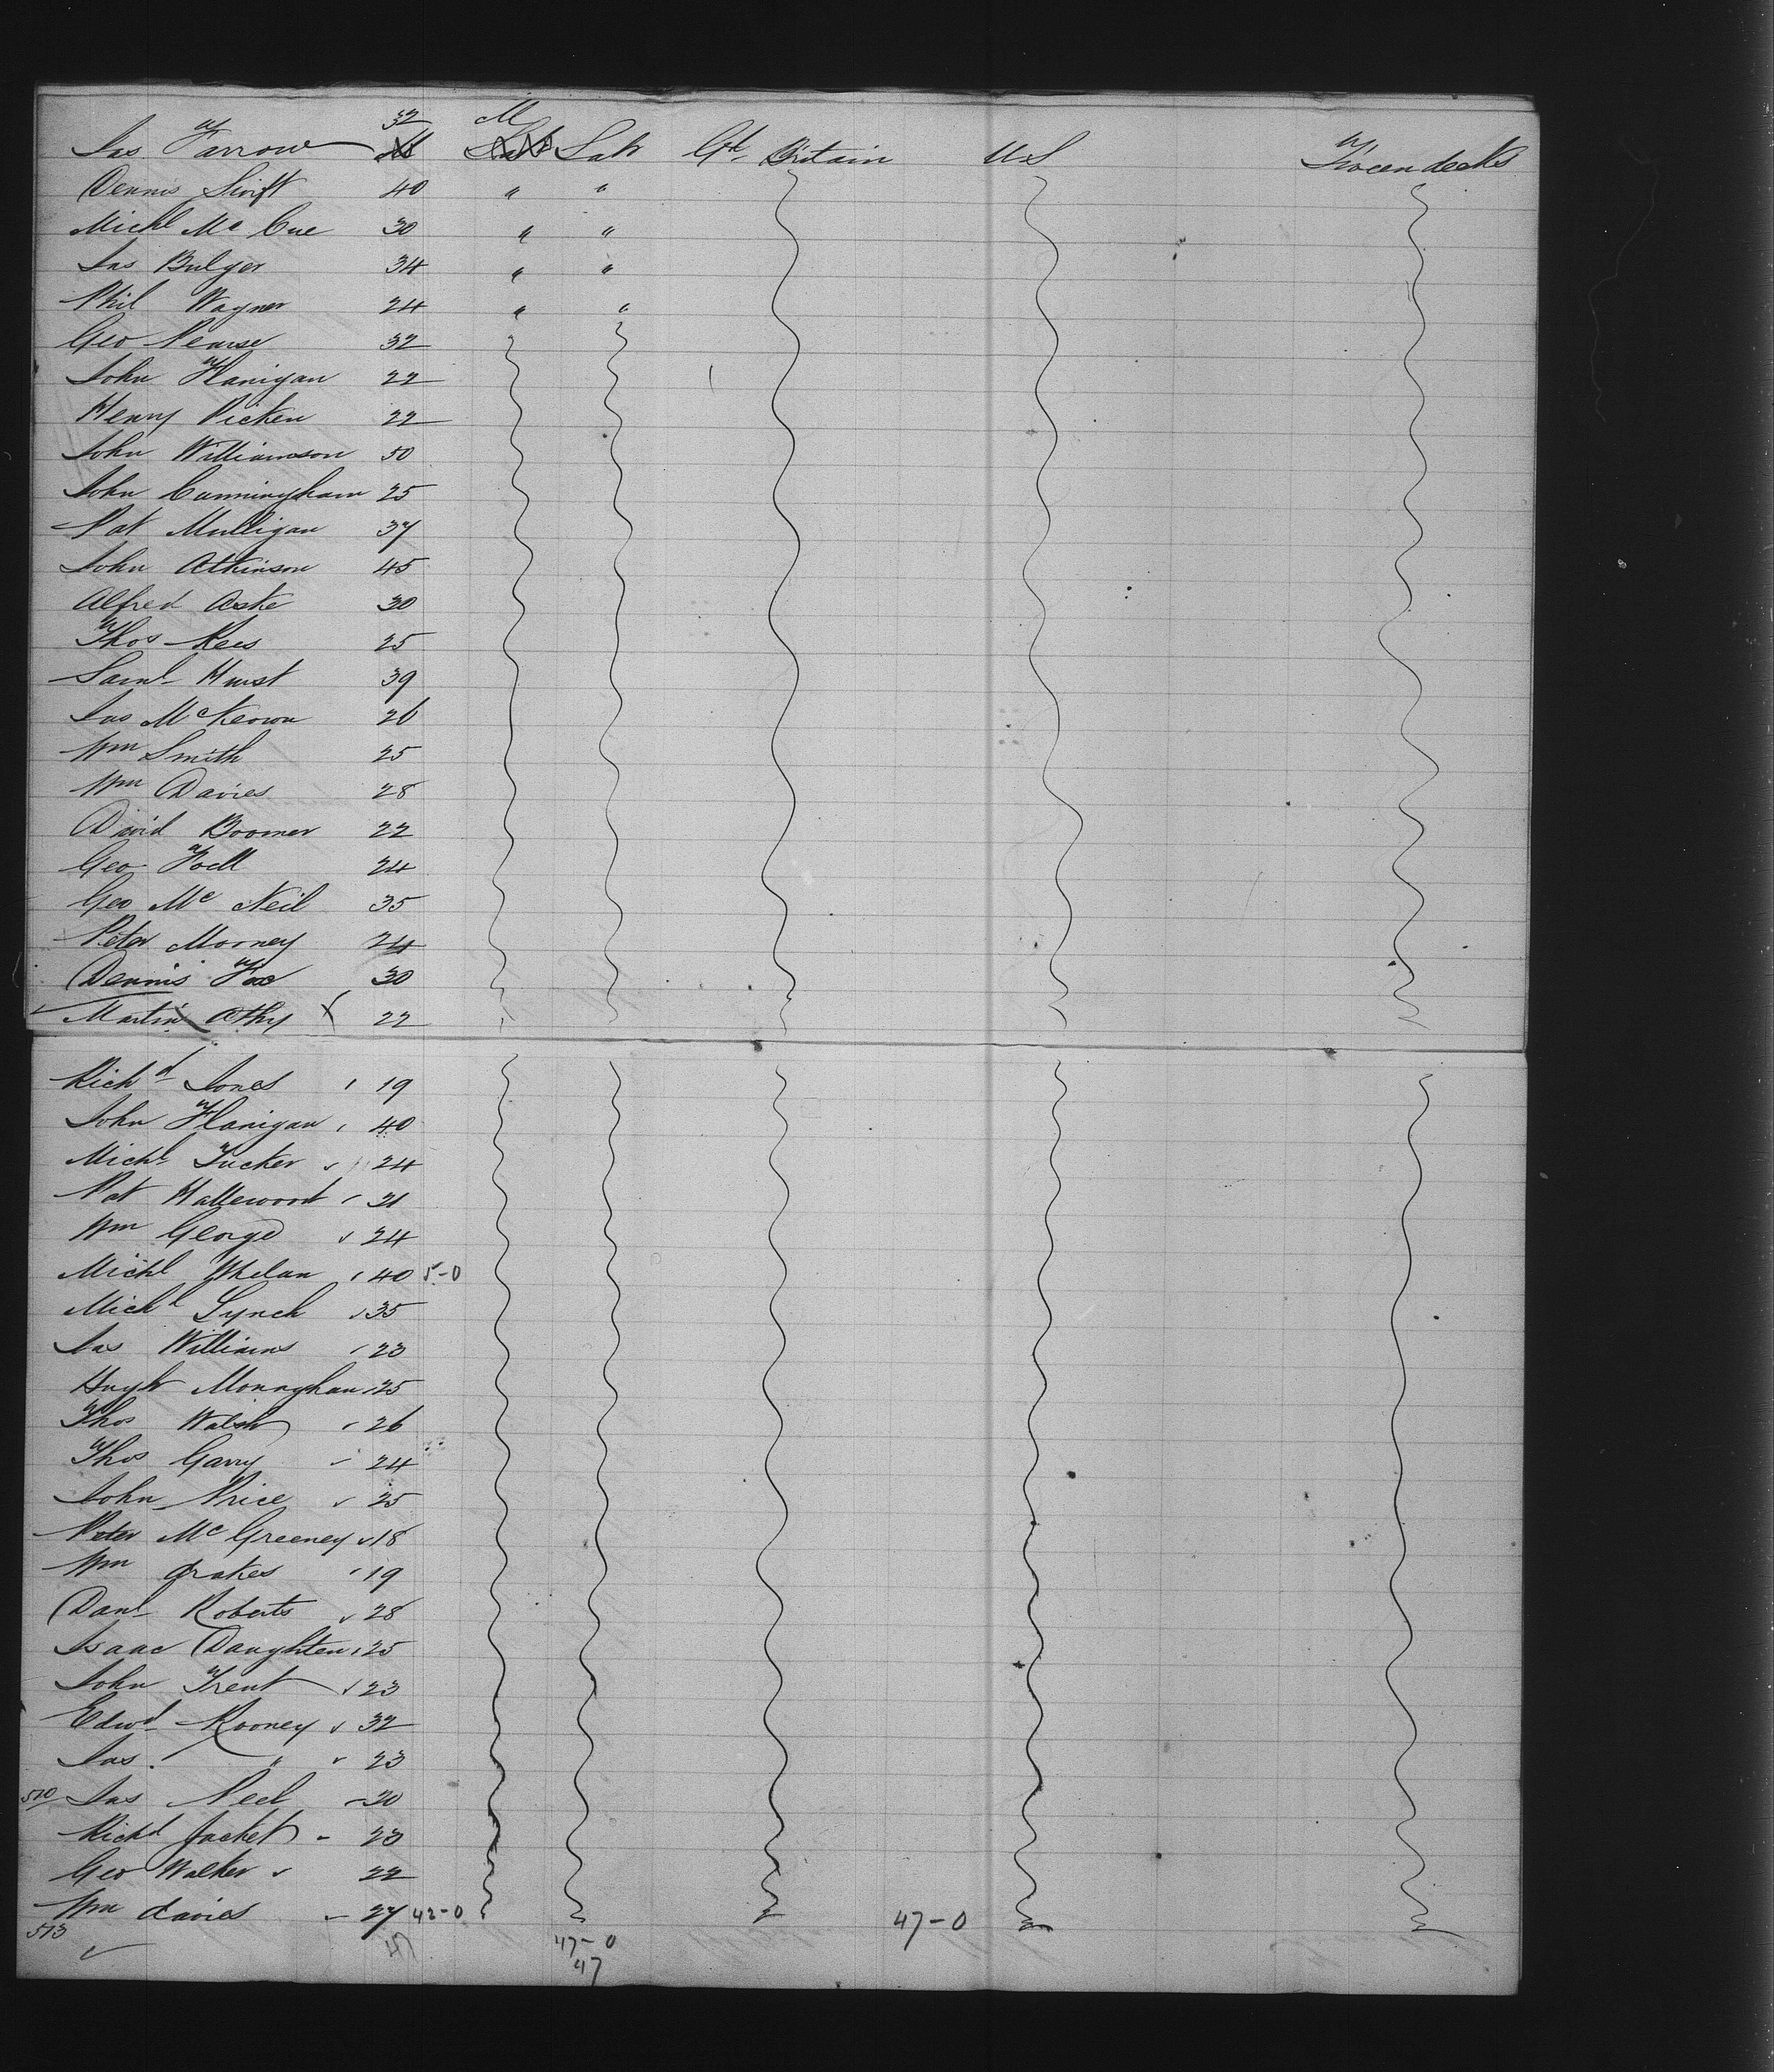 32 M
Jas. Farrow Lab Gt. Britain U S Tween decks
Dennis Swift 40 " "
Michl Mc Cue 30 " "
Jas Bulger 34 " "
Phil Wagner 24 " "
Geo Pearse 32
John Flanigan 22
Henry Picken 22
John Williamson 50
John Cunningham 25
Pat Mulligan 37
John Atkinson 45
Alfred Aske 30
Thos Rees 25
Saml Hurst 39
Jas McKeown 26
Wm Smith 25
Wm Davies 28
David Boomer 22
Geo 24
Geo Mc Neil 35
Peter Mooney 24
Dennis Fox 30
Martin Athy X 22
Richd Jones 19
John Flanigan 40
Michl Tucker 24
Pat Hallewood 21
Wm George 24
Michl Whelan 40 5-0
Michl Lynch 35
Jas Williams 23
Hugh Monaghan 25
Thos Walsh 26
Thos Garry 24
John Price 25
Peter Mc Greeney 18
Wm drakes 19
Danl Roberts 28
Isaac Daughten 25
John Trent 23
Edwd Rooney 32
Jas. " 23
510 Jas Peel 20
Richd Jacket 23
Geo Walker 22
Wm davies 27 42-0 47-0
513 47 47-0
47